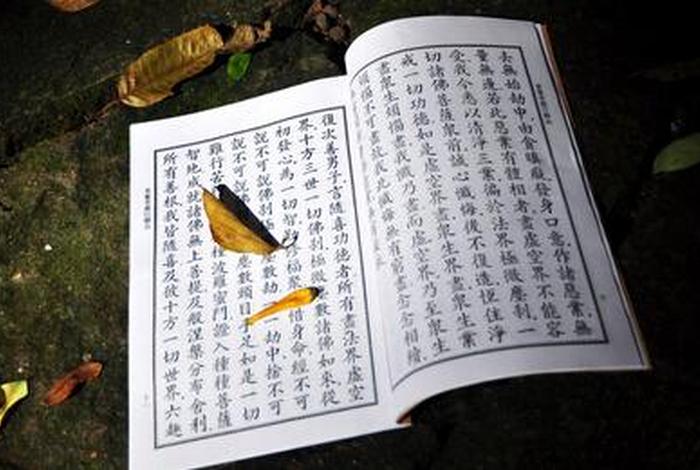 去無始劫中由貪瞋癡發身口意作諸惡業無
量無邊若此惡業有體相者盡虛空界不能容
受我今悉以清淨三業徧於法界極微塵剎一
切諸佛菩薩眾前誠心懺悔後不復造恆住淨
戒一切功德如是虛空界盡眾生界盡眾生業
盡眾生煩惱盡我懺乃盡而虛空界乃至眾生
煩惱不可盡故我此懺悔無有窮盡念念相續
復次善男子言隨喜功德者所有盡法界虛空
界十方三世一切佛剎極微塵數諸佛如來從
初發心為一切智福聚惜身命經不可
說不可說佛剎極數劫一劫中捨不可
說不可說塵數頭目手足如是一切
難行苦種波羅蜜門證入種種菩薩
智地成就諸佛無上菩提及般涅槃分布舍利
所有善根我皆隨喜及彼十方一切世界六趣